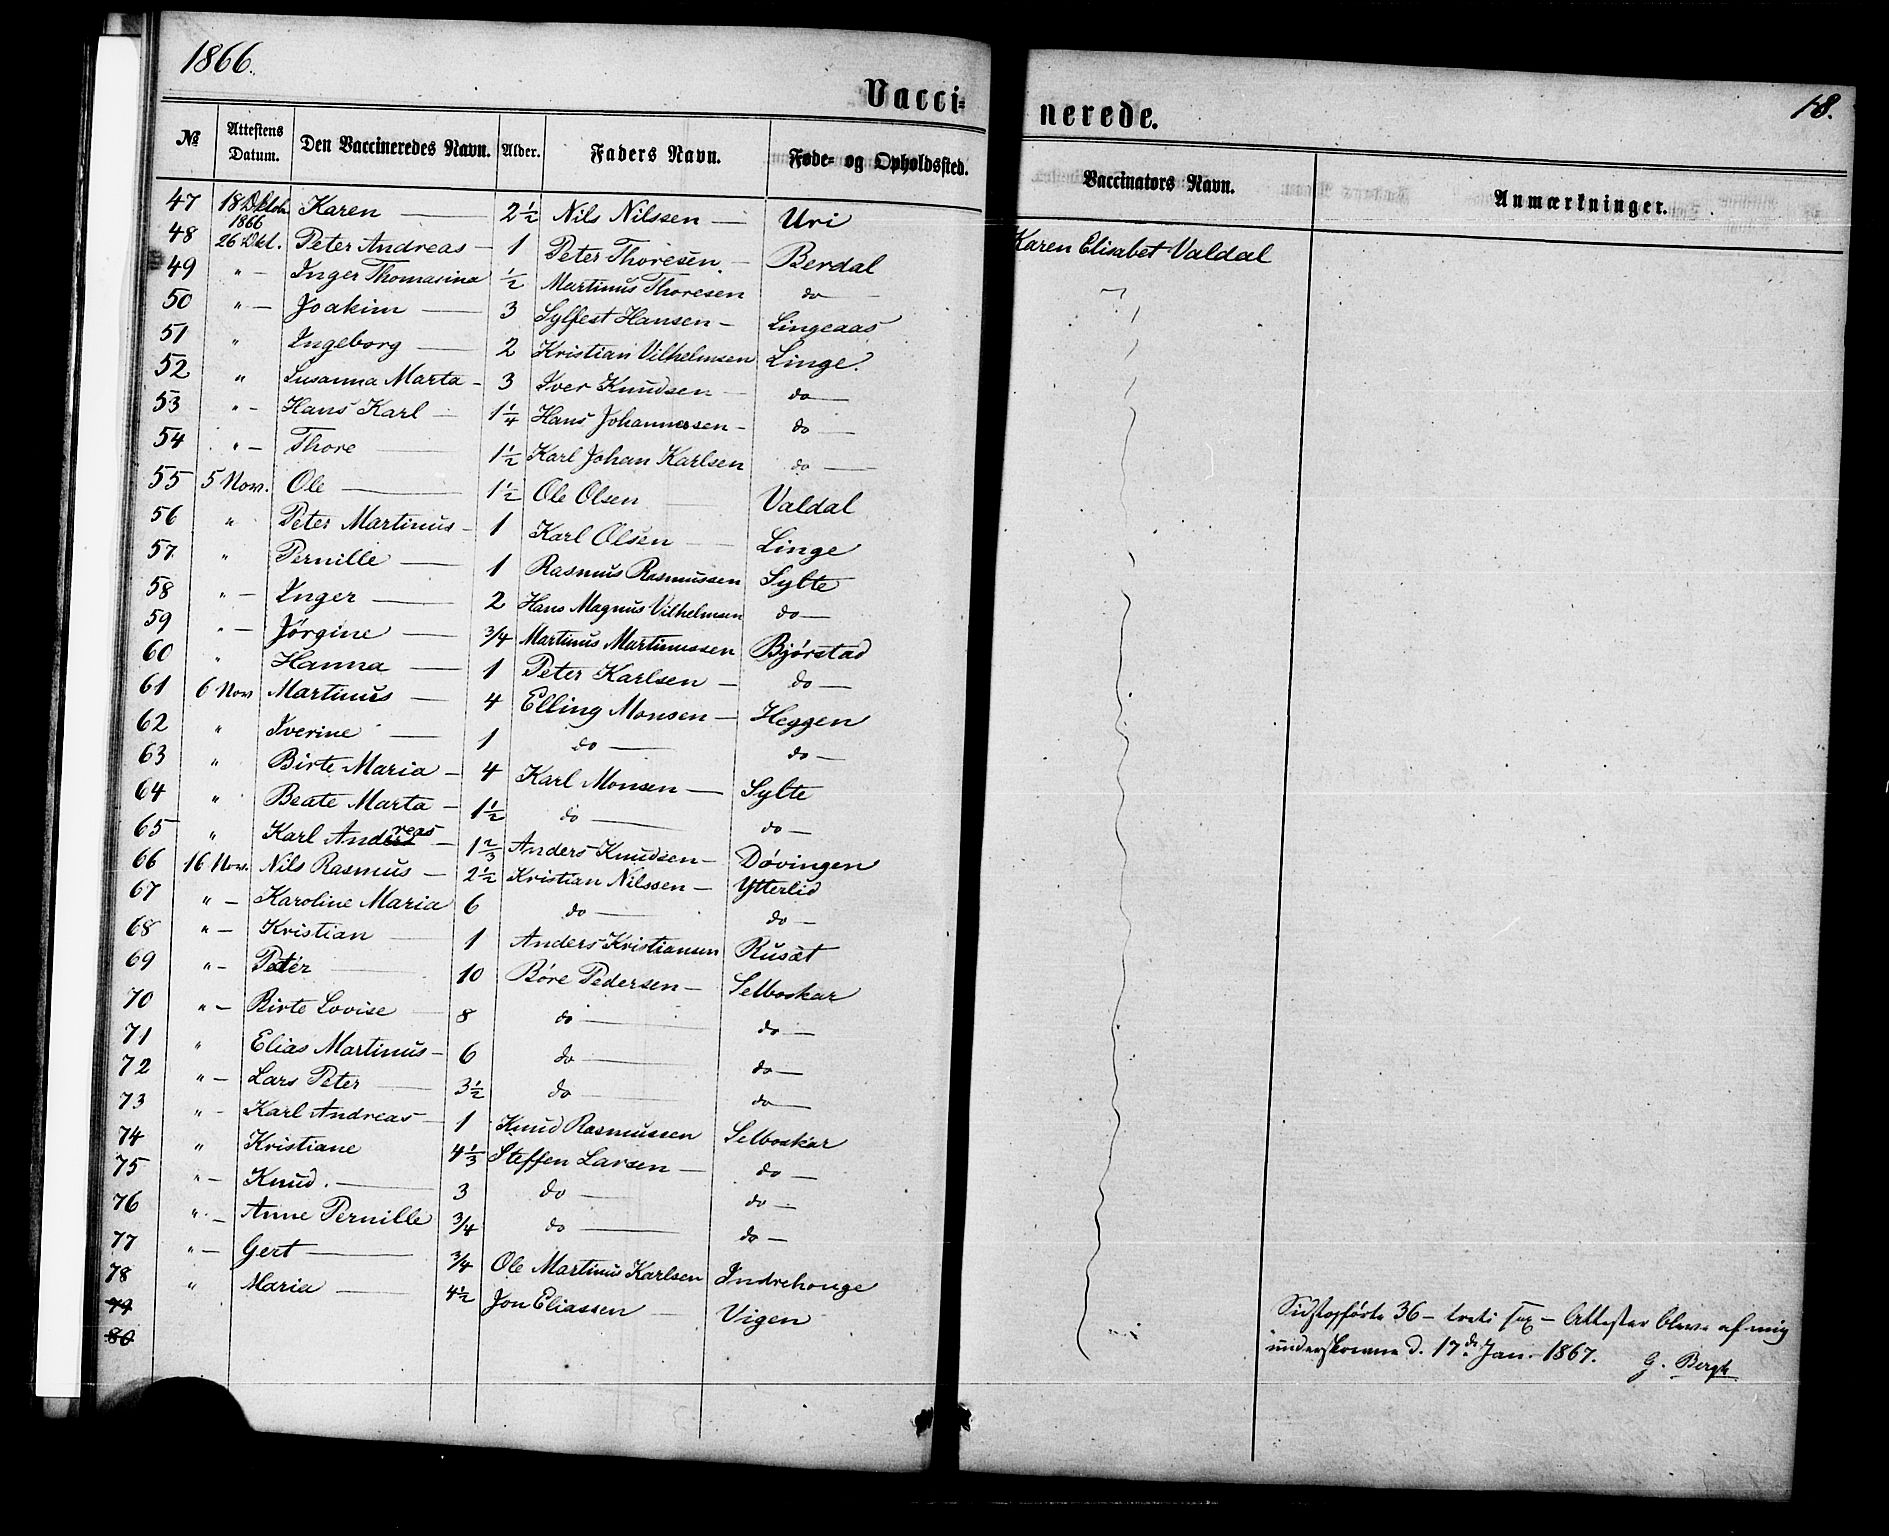 1866.
18.
Vacci=
nerede.
№ Attestens Datum. Den Vaccineredes Navn. Alder. Faders Navn. Føde- og Opholdssted. Vaccinators Navn. Anmærkninger.
47 18 Oktob. 1866 Karen — 2½ Nils Nilssen — Uri Karen Elisabet Valdal
48 26 Okt. Peter Andreas — 1 Peter Thoresen — Berdal
49 " — Inger Thomasina ½ Martinus Thoresen do —
50 " — Joakim — 3 Sylfest Hansen — Lingeaas
51 " Ingeborg — 2 Kristian Vilhelmsen Linge.
52 " Susanna Marta — 3 Iver Knudsen — do —
53 " — Hans Karl — 1¼ Hans Johannessen — do —
54 " — Thore — 1½ Karl Johan Karlsen do —
55 5 Nov. Ole — 1½ Ole Olsen Valdal
56 " Peter Martinus — 1 Karl Olsen — Linge
57 " Pernille — 1 Rasmus Rasmussen Sylte
58 " — Inger — 2 Hans Magnus Vilhelmsen do —
59 " — Jørgine — 3/4 Martinus Martinussen Bjørstad
60 " Hanna — 1 Peter Karlsen — do —
61 6 Nov Martinus — 4 Elling Monsen — Heggen
62 " Iverine — 1 do — do —
63 " Birte Maria — 4 Karl Monsen — Sylte
64 " Beate Marta — 1½ do — do —
65 " Karl Andreas — 1⅔ Anders Knudsen — Døvingen
66 16 Nov. Nils Rasmus — 2½ Kristian Nilssen — Ytterlid
67 " — Karoline Maria 6 do — do —
68 " — Kristian — 1 Anders Kristiansen Rusæt
69 " — Peter — 10 Børe Pedersen — Selboskar
70 " — Birte Lovise — 8 do — do —
71 " Elias Martinus — 6 do — do —
72 " — Lars Peter — 3½ do — do —
73 " — Karl Andreas — 1 Knud Rasmussen Selboskar
74 " Kristiane 4⅓ Steffen Larsen — do —
75 " — Knud. — 3 do — do —
76 " — Anne Pernille 3/4 do — do —
77 " — Gert — 3/4 Ole Martinus Karlsen Indrehonge
78 " Maria — 4½ Jon Eliassen — Vigen
79
80
Sidstopførte 36 — treti sex — Attester bleve af mig
underskrevne d. 17de Jan. 1867. G. Bergh